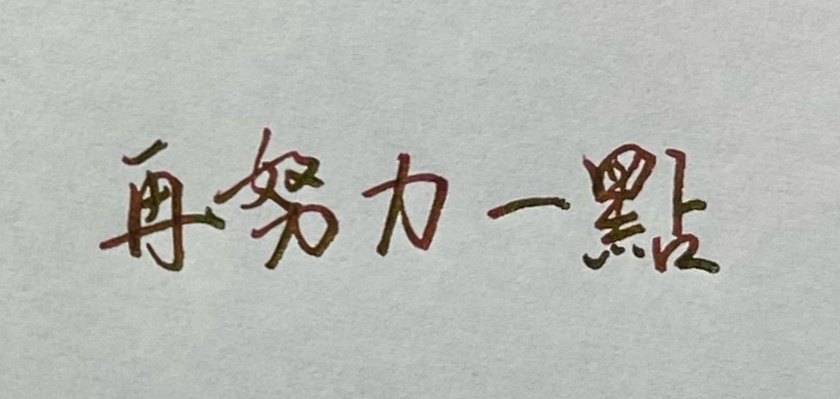 再努力一點